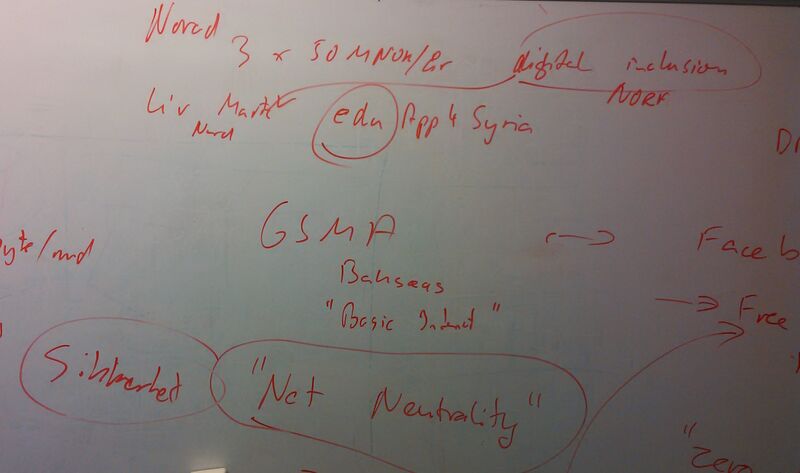 Norad
3 x 50 MNOK/år digital inclusion
NORK
Liv Marte
Norad
edu App 4 Syria
Di
GSMA → Faceb
yte/md
Bahseas
"Basic Internet" → Free
Sikkerhet "Net Neutrality"
"Zero